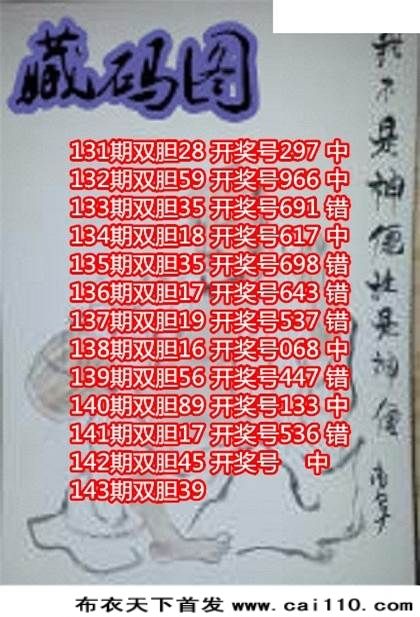 藏码图
不是神
是神
131期双胆28 开奖号297 中
132期双胆59 开奖号966 中
133期双胆35 开奖号691 错
134期双胆18 开奖号617 中
135期双胆35 开奖号698 错
136期双胆17 开奖号643 错
137期双胆19 开奖号537 错
138期双胆16 开奖号068 中
139期双胆56 开奖号447 错
140期双胆89 开奖号133 中
141期双胆17 开奖号536 错
142期双胆45 开奖号 中
143期双胆39
布衣天下首发 www.cai110.com